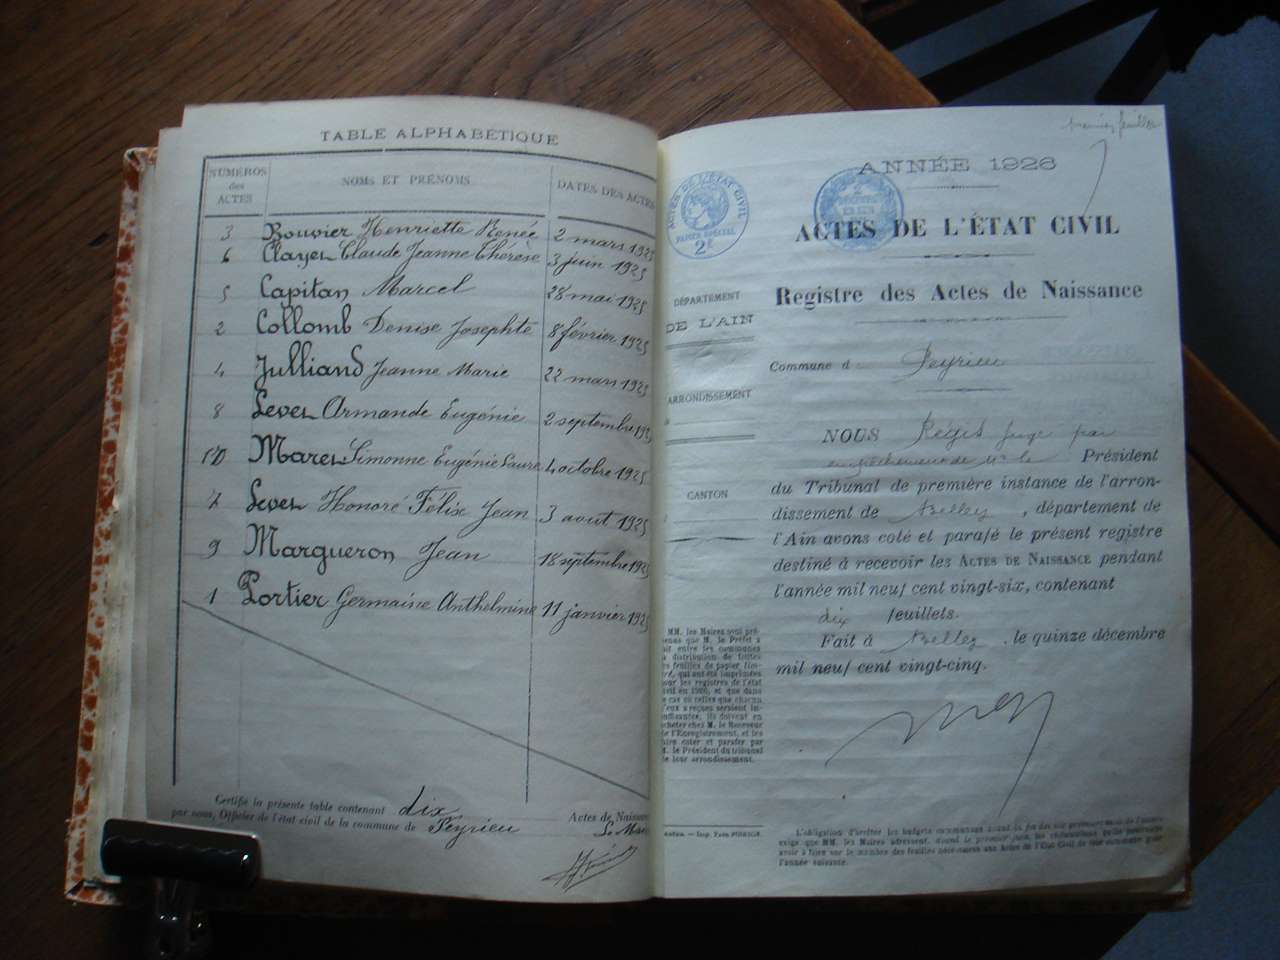 TABLE ALPHABÉTIQUE
NUMÉROS des ACTES
NOMS ET PRÉNOMS
DATES DES ACTES
3 Bouvier Henriette Renée 2 mars 1925
6 Clayet Claude Jeanne Thérèse 3 juin 1925
5 Capitan Marcel 28 mai 1925
2 Collomb Denise Josephte 8 février 1925
4 Julliand Jeanne Marie 22 mars 1925
8 Levet Armande Eugénie 2 septembre 1925
10 Maret Simonne Eugénie Laure 4 octobre 1925
Levet Honoré Félise Jean 3 août 1925
9 Margueron Jean 18 septembre 1925
1 Portier Germaine Anthelmine 11 janvier 1925
Certifié la présente table contenant dix Actes de Naissan
par nous, Officier de l'état civil de la commune de Peyrieu
ACTES DE L'ÉTAT CIVIL
PAPIER SPÉCIAL
2F
DÉPARTEMENT
DE L'AIN
ARRONDISSEMENT
CANTON
MM. les Maires sont pré-
venus que M. le Préfet a
fait entre les communes
la distribution de toutes
les feuilles de papier tim-
bré, qui ont été imprimées
pour les registres de l'état
civil en 1926, et que dans
le cas où celles que chacun
d'eux a reçues seraient in-
suffisantes, ils doivent en
acheter chez M. le Receveur
de l'Enregistrement, et les
faire coter et parafer par
M. le Président du tribunal
de leur arrondissement.
feuillet
ANNÉE 1926
ACTES DE L'ÉTAT CIVIL
Registre des Actes de Naissance
Commune d Peyrieu
NOUS Régis Juge par
empêchement de Mr le Président
du Tribunal de première instance de l'arron-
dissement de Belley, département de
l'Ain avons coté et parafé le présent registre
destiné à recevoir les ACTES DE NAISSANCE pendant
l'année mil neuf cent vingt-six, contenant
dix feuillets.
Fait à Belley, le quinze décembre
mil neuf cent vingt-cinq.
L'obligation d'arrêter les budgets communaux avant la fin de
exige que MM. les Maires adressent, avant le premier juin, les réclamations qu'ils pourraient
avoir à faire sur le nombre des feuilles nécessaires aux Actes de l'État Civil de leur commune pour
l'année suivante.